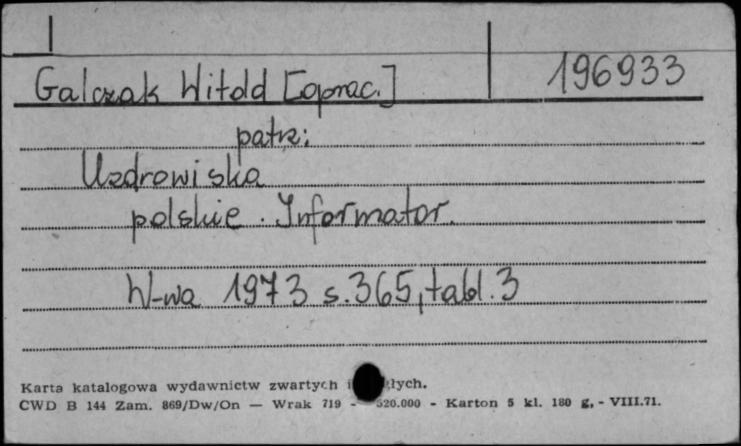 Galczak Witold [oprac.] 196933
patrz:
Uzdrowiska
polskie. Informator.
W-wa 1973 s.365, tabl.3
Karta katalogowa wydawnictw zwartych
CWD B 144 Zam. 869/Dw/On — Wrak 719 - 520.000 - Karton 5 kl. 180 g, - VIII.71.